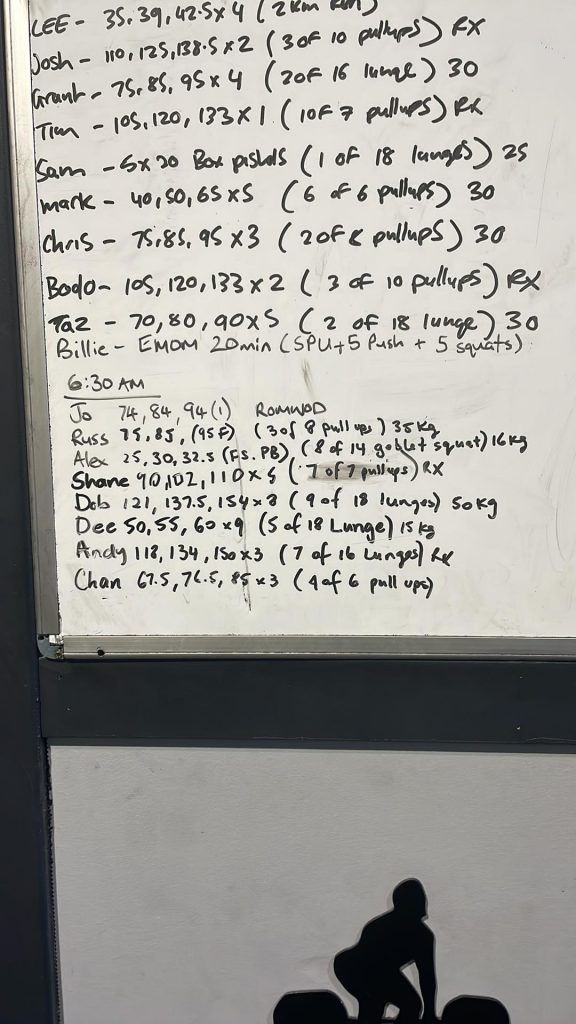 LEE - 35, 39, 42.5 x 4 (2km run)
Josh - 110, 125, 138.5 x 2 (3 of 10 pullups) RX
Grant - 75, 85, 95 x 4 (2 of 16 lunge) 30
Tim - 105, 120, 133 x 1 (1 of 7 pullups) RX
Sam - 5 x 20 Box pistols (1 of 18 lunges) 25
Mark - 40, 50, 65 x 5 (6 of 6 pullups) 30
Chris - 75, 85, 95 x 3 (2 of 8 pullups) 30
Bodo - 105, 120, 133 x 2 (3 of 10 pullups) RX
Taz - 70, 80, 90 x 5 (2 of 18 lunge) 30
Billie - EMOM 20min (5PU + 5 Push + 5 squats)
6:30 AM
Jo 74, 84, 94 (1) ROMWOD
Russ 75, 85, (95F) (3 of 8 pull ups) 35kg
Alex 25, 30, 32.5 (FS. PB) (8 of 14 goblet squat) 16kg
Shane 90, 102, 110 x 5 (7 of 7 pullups) RX
Deb 121, 137.5, 154 x 3 (9 of 18 lunges) 50kg
Dee 50, 55, 60 x 9 (5 of 18 Lunge) 15kg
Andy 118, 134, 150 x 3 (7 of 16 Lunges) RX
Chan 67.5, 76.5, 85 x 3 (4 of 6 pull ups)